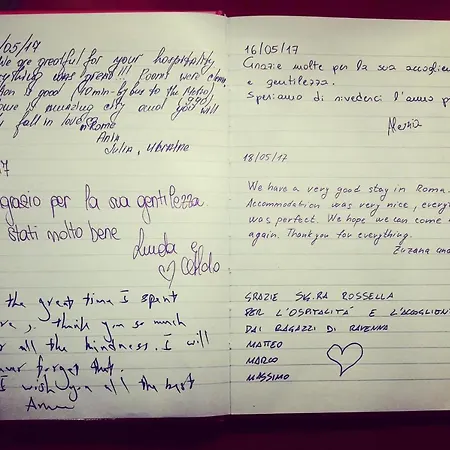 /05/17
We are greatful for your hospitality
everything was great!!! Rooms were clean,
is good 10min-by bus to the Metro)
Rome is amazing city and you will
fall in love
in Rome
Julia, Ukraine
17
per la sua gentilezza
stati molto bene
Aldo
the great time I spent
, thank you so much
all the kindness. I will
never forget that.
I wish you all the best
16/05/17
Grazie molte per la sua accoglien
e gentilezza.
Speriamo di rivederci l'anno pr
18/05/17
We have a very good stay in Roma.
Accommodation was very nice, every
was perfect. We hope we can come
again. Thank you for everything.
Zuzana and
GRAZIE SIG.RA ROSSELLA
PER L'OSPITALITÁ E L'ACCOGLIEN
DAI RAGAZZI DI RAVENNA
MATTEO
MARCO
MASSIMO